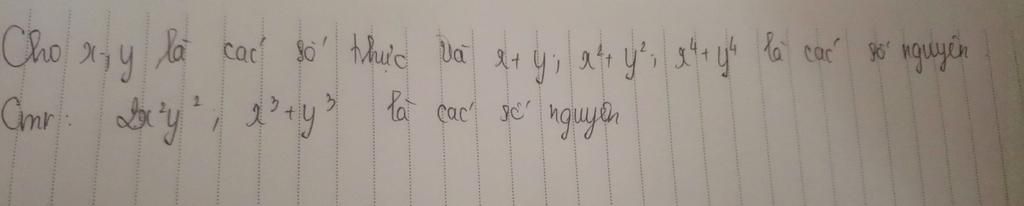 Cho x; y là các số thực và x + y; x² + y²; x⁴ + y⁴ là các số nguyên
Cmr: 2x²y²; x³ + y³ là các số nguyên